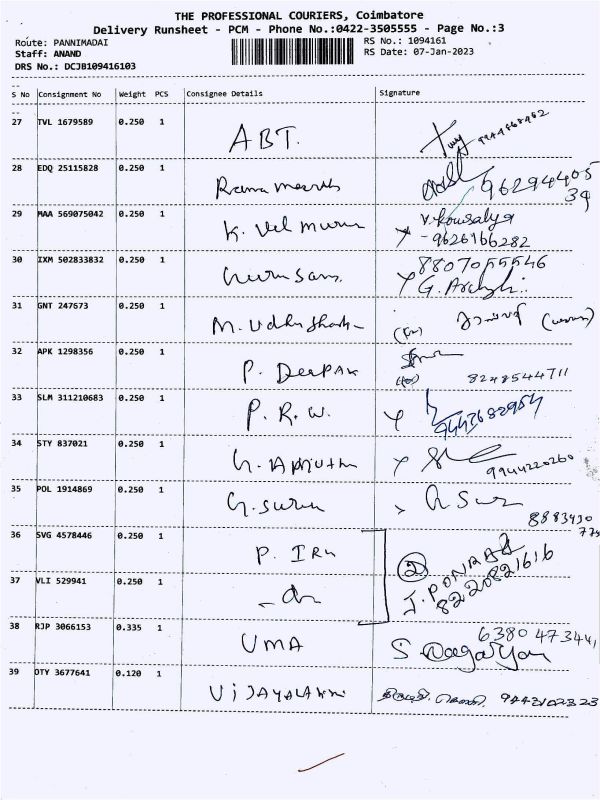 THE PROFESSIONAL COURIERS, Coimbatore
Delivery Runsheet - PCM - Phone No.:0422-3505555 - Page No.:3
Route: PANNIMADAI
RS No.: 1094161
Staff: ANAND
RS Date: 07-Jan-2023
DRS No.: DCJB109416103
S No Consignment No Weight PCS Consignee Details Signature
27 TVL 1679589 0.250 1 ABT.
28 EDQ 25115828 0.250 1 96294405
39
29 MAA 569075042 0.250 1 K. Vel Murun V. Kowsalya
- 9626166282
30 IXM 502833832 0.250 1 8807055546
G.
31 GNT 247673 0.250 1 M.
32 APK 1298356 0.250 1 P. DeePAK 8248544711
33 SLM 311210683 0.250 1 P. R. W. 9442682954
34 STY 837021 0.250 1 9944220260
35 POL 1914869 0.250 1 G. Suru 8883430
36 SVG 4578446 0.250 1 P. IRU 2
J. PONRAJ
8220821616
37 VLI 529941 0.250 1 - do
38 RJP 3066153 0.335 1 UMA 6380473441
S
39 OTY 3677641 0.120 1 9443102323